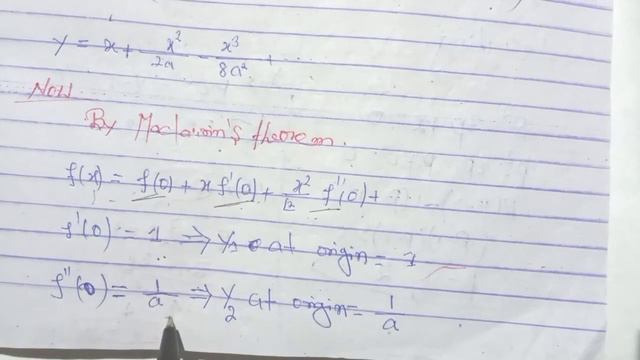 y = x + x²/2a - x³/8a² + ...
Now
By Maclaurin's theorem.
f(x) = f(0) + x f'(0) + x²/2 f''(0) + ...
f'(0) = 1 ⇒ y₁ at origin = 1
f''(0) = 1/a ⇒ y₂ at origin = 1/a